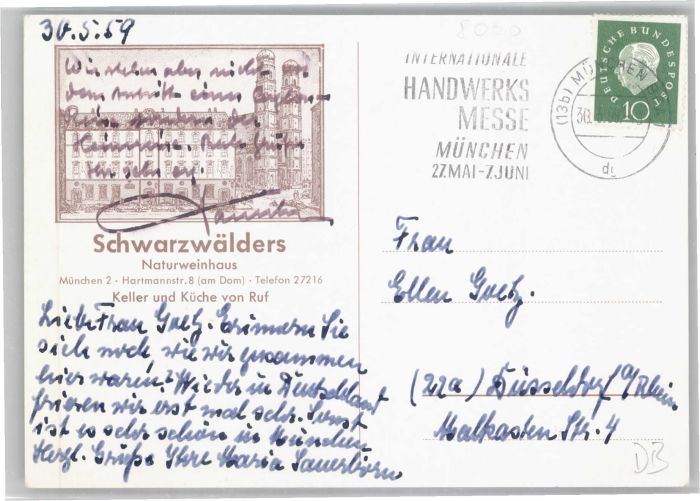 30.5.59
8000
Wir stehen aber nicht
vor dem Antritt einer
Reise sondern der
Heimreise.
INTERNATIONALE
HANDWERKS
MESSE
MÜNCHEN
27.MAI-7.JUNI
(13b) MÜNCHEN
30.
DEUTSCHE BUNDESPOST
10
Schwarzwälders
Naturweinhaus
München 2 · Hartmannstr. 8 (am Dom) · Telefon 27216
Keller und Küche von Ruf
Liebe Frau Goetz. Erinnern Sie
sich noch, wie wir zusammen
hier waren? Wieder in Deutschland
frieren wir erst mal sehr. Sonst
ist es sehr schön in München
Herzl. Grüße Ihre Maria Sauerborn
Frau
Ellen Goetz.
(22a) Düsseldorf a/Rhein
Malkasten Str. 4
DB